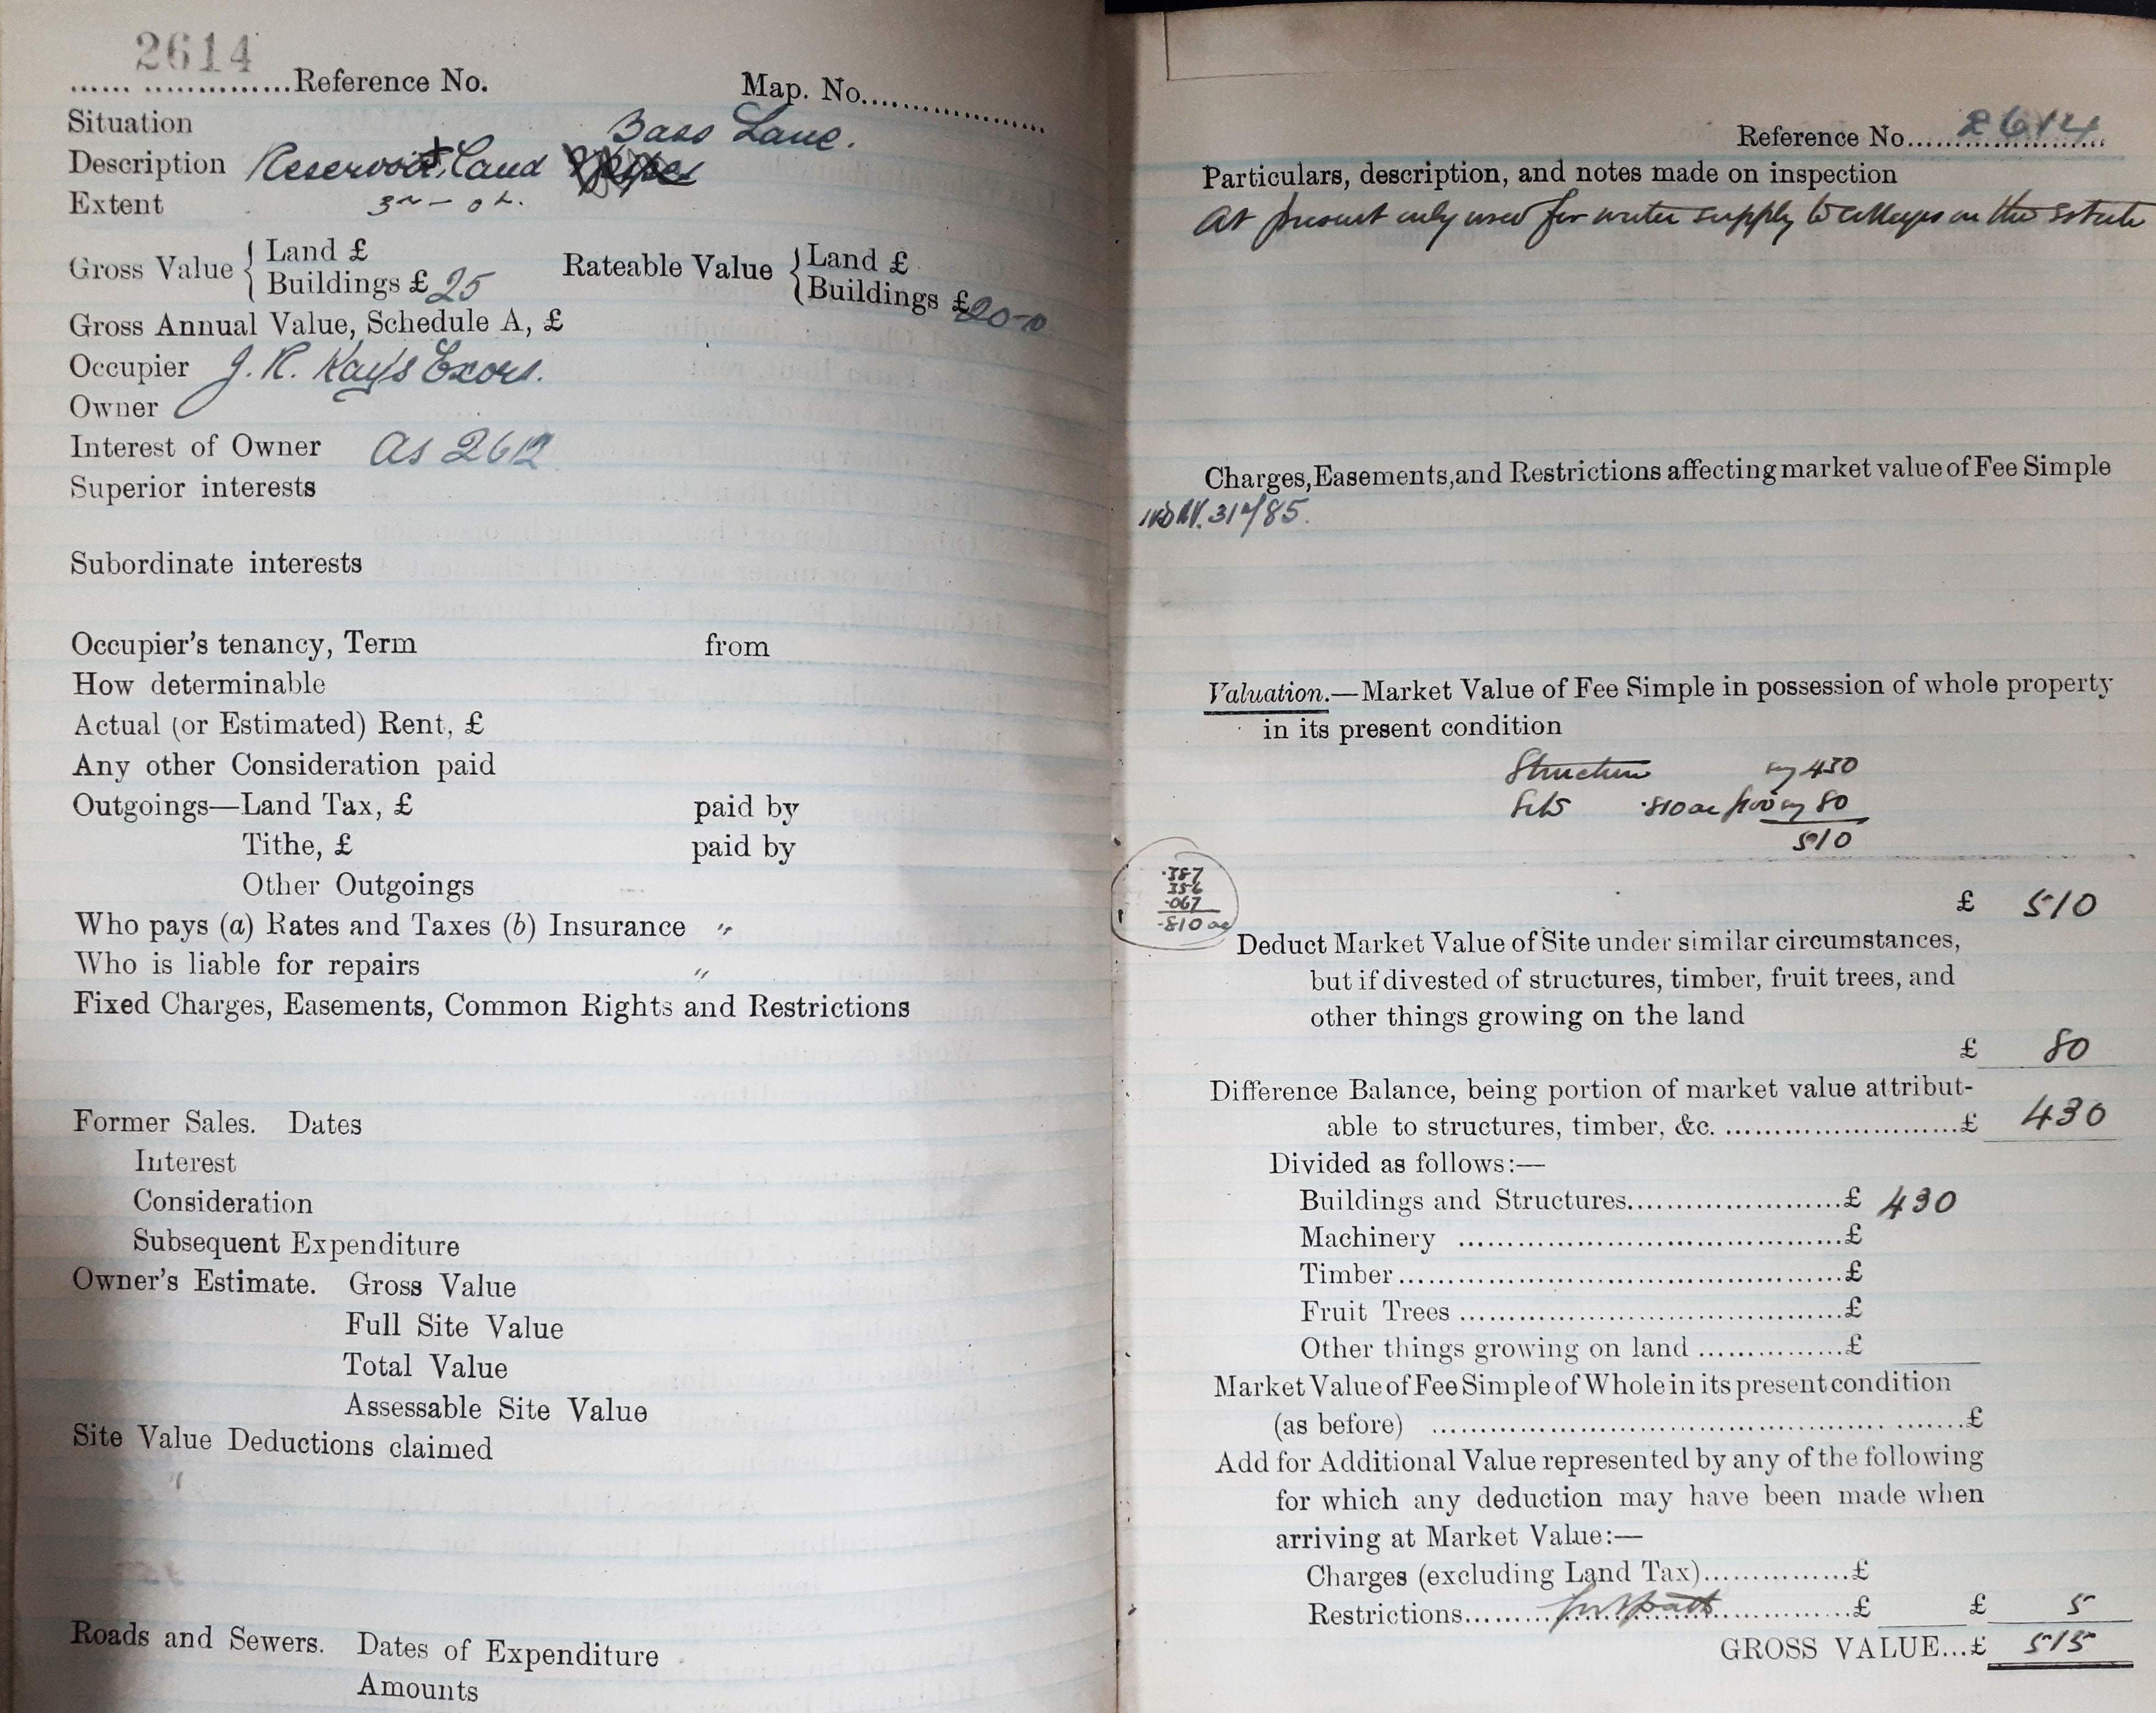 2614
...... ..............Reference No.
Map. No....................
Situation Bass Lane.
Description Reservoir & Land
Extent
Gross Value { Land £
Buildings £ 25
Rateable Value { Land £
Buildings £ 20-0
Gross Annual Value, Schedule A, £
Occupier J. R. Kay's Exors.
Owner
Interest of Owner as 2612
Superior interests
Subordinate interests
Occupier's tenancy, Term from
How determinable
Actual (or Estimated) Rent, £
Any other Consideration paid
Outgoings—Land Tax, £ paid by
Tithe, £ paid by
Other Outgoings
Who pays (a) Rates and Taxes (b) Insurance "
Who is liable for repairs "
Fixed Charges, Easements, Common Rights and Restrictions
Former Sales. Dates
Interest
Consideration
Subsequent Expenditure
Owner's Estimate. Gross Value
Full Site Value
Total Value
Assessable Site Value
Site Value Deductions claimed
Roads and Sewers. Dates of Expenditure
Amounts
Reference No. 2614
Particulars, description, and notes made on inspection
At present only used for water supply to cottages on the Estate
Charges, Easements, and Restrictions affecting market value of Fee Simple
31/85.
Valuation.—Market Value of Fee Simple in possession of whole property
in its present condition
Structure say 430
Site .810 ac £100 say 80
510
.387
356
.067
.810 ac
£ 510
Deduct Market Value of Site under similar circumstances,
but if divested of structures, timber, fruit trees, and
other things growing on the land
£ 80
Difference Balance, being portion of market value attribut-
able to structures, timber, &c. ..........................£ 430
Divided as follows:—
Buildings and Structures........................£ 430
Machinery ..........................................£
Timber.................................................£
Fruit Trees ..........................................£
Other things growing on land ................£
Market Value of Fee Simple of Whole in its present condition
(as before) ..................................................£
Add for Additional Value represented by any of the following
for which any deduction may have been made when
arriving at Market Value:—
Charges (excluding Land Tax)................£
Restrictions........ footpath ................£ £ 5
GROSS VALUE...£ 515